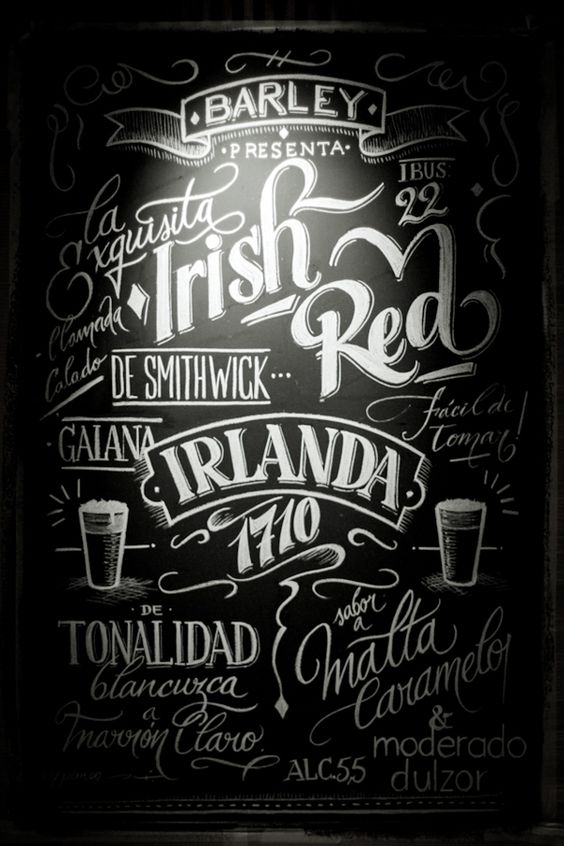 BARLEY
·PRESENTA·
IBUS:
22
La
Exquisita
Irish
Red
Llamada
Calado
DE SMITHWICK...
fácil de
tomar!
GAIANA
IRLANDA
1710
DE
TONALIDAD
blancuzca
a
marrión Claro.
sabor
a
malta
Caramelo
&
moderado
dulzor
ALC.5,5